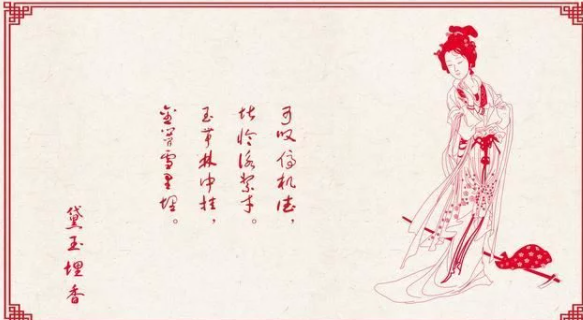 可叹停机德，
堪怜咏絮才。
玉带林中挂，
金簪雪里埋。
黛玉埋香